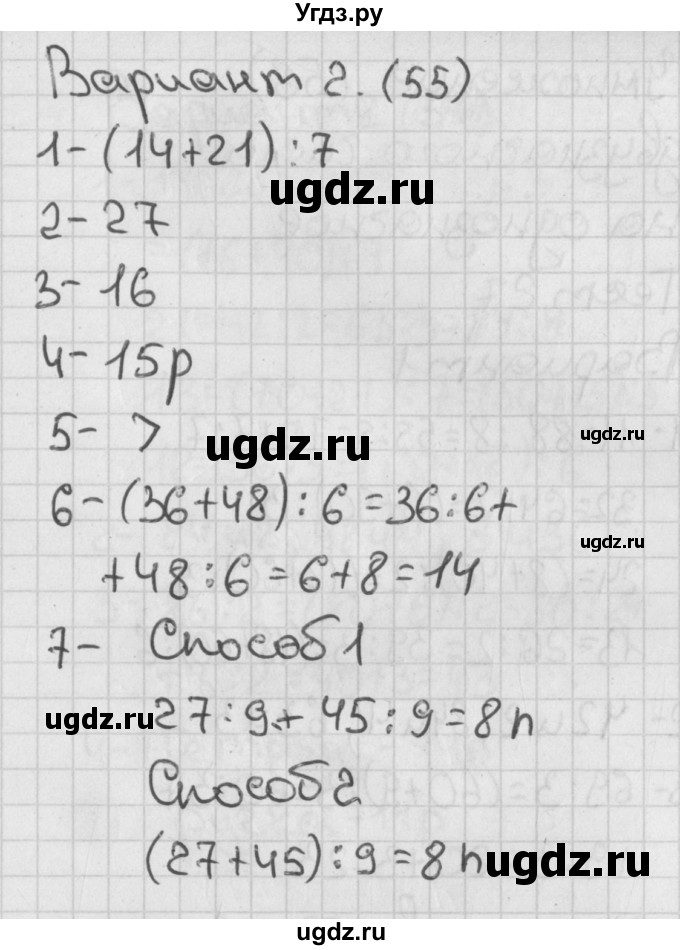 Угдз.ру
Вариант 2. (55)
1- (14+21) : 7
ugdz.ru
2- 27
3- 16
4- 15р
5- >
ugdz.ru
ugdz.ru
6- (36+48) : 6 = 36:6+
ugdz.ru
+48 : 6 = 6+8 = 14
7- Способ 1
ugdz.ru
27 : 9 + 45 : 9 = 8 п
Способ 2
(27+45) : 9 = 8 п
ugdz.ru
ugdz.ru